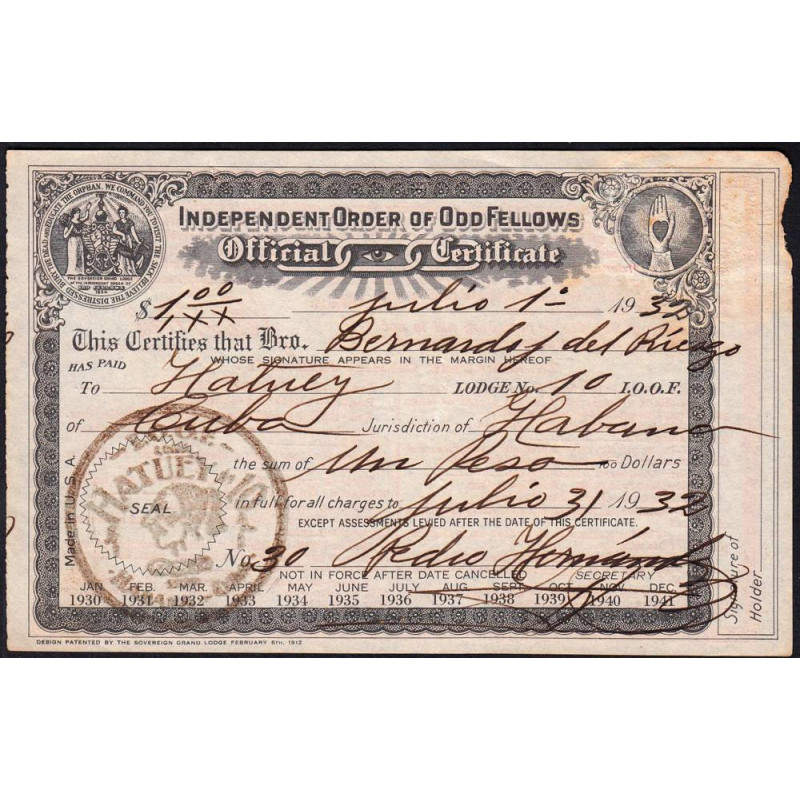 WE COMMAND YOU TO VISIT THE SICK RELIEVE THE DISTRESSED BURY THE DEAD AND EDUCATE THE ORPHAN.
THE SOVEREIGN GRAND LODGE
OF THE INDEPENDENT ORDER OF
ODD FELLOWS
INDEPENDENT ORDER OF ODD FELLOWS
Official Certificate
$ 1.00/xx julio 1º 1932
This Certifies that Bro. Bernardo J del Riesgo
WHOSE SIGNATURE APPEARS IN THE MARGIN HEREOF
HAS PAID
To Hatuey LODGE No. 10 I.O.O.F.
of Cuba Jurisdiction of Habana
the sum of Un Peso 100 Dollars
in full for all charges to julio 31 1932
EXCEPT ASSESSMENTS LEVIED AFTER THE DATE OF THIS CERTIFICATE.
No. 30 Pedro Hernández
NOT IN FORCE AFTER DATE CANCELLED SECRETARY
JAN. FEB. MAR. APRIL MAY JUNE JULY AUG. SEPT. OCT. NOV. DEC.
1930 1931 1932 1933 1934 1935 1936 1937 1938 1939 1940 1941
HATUEY
SEAL
Made in U.S.A.
Signature of
Holder
DESIGN PATENTED BY THE SOVEREIGN GRAND LODGE FEBRUARY 6TH, 1912